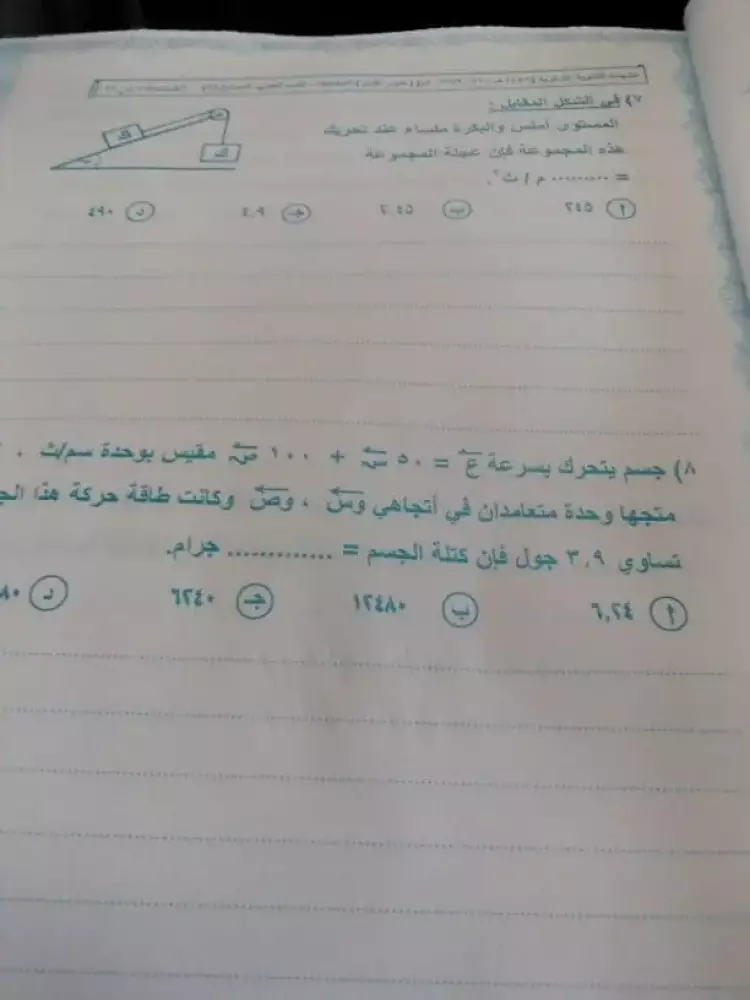 ٧) في الشكل المقابل :
المستوى أملس والبكرة ملساء عند تحريك
هذه المجموعة فإن عجلة المجموعة
= ......... م / ث٢.
أ ٢٤٥ ب ٢.٤٥ جـ ٤.٩ د ٤٩٠
ك
ك
٨) جسم يتحرك بسرعة ع = ٥٠ س + ١٠٠ ص مقيس بوحدة سم/ث ،
متجها وحدة متعامدان في أتجاهي وس ، وص وكانت طاقة حركة هذا
تساوي ٣,٩ جول فإن كتلة الجسم = ............. جرام.
أ ٦,٢٤ ب ١٢٤٨٠ جـ ٦٢٤٠ د